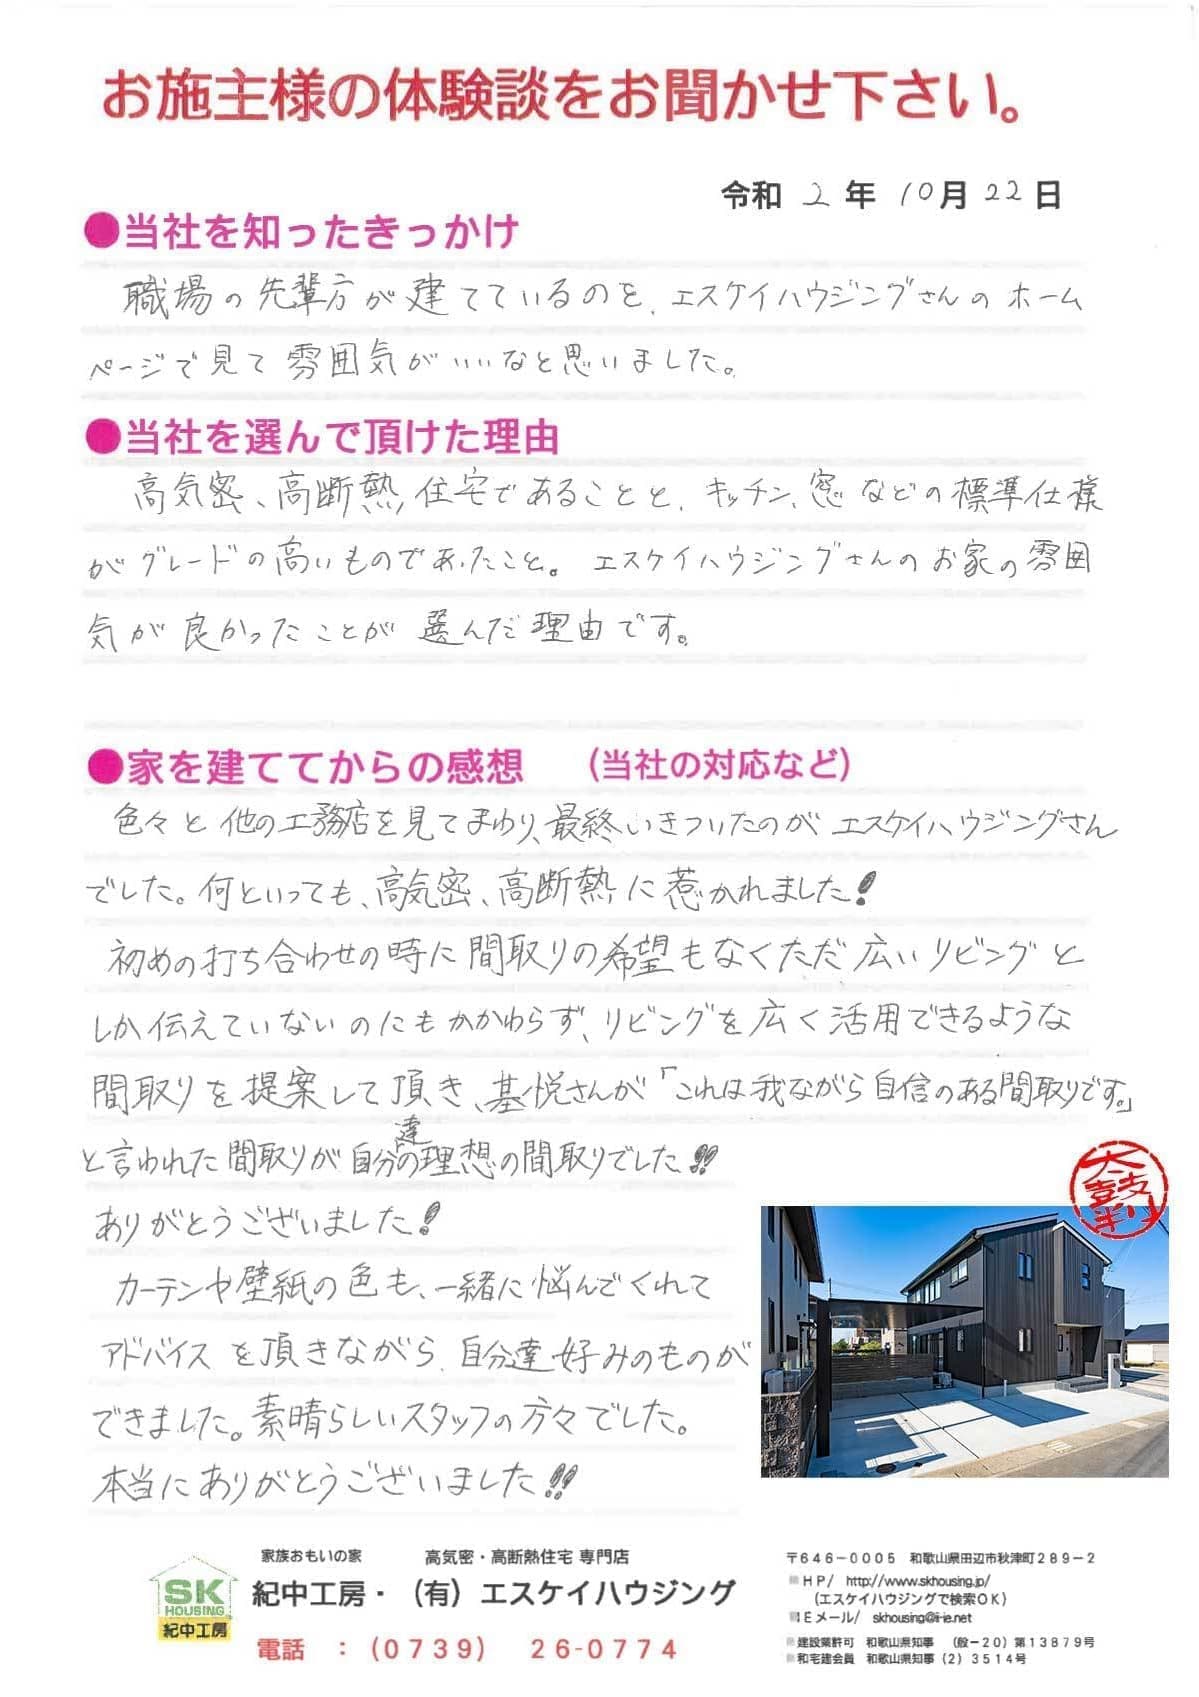 お施主様の体験談をお聞かせ下さい。
令和 2 年 10月 22日
●当社を知ったきっかけ
職場の先輩方が建てているのを、エスケイハウジングさんのホーム
ページで見て雰囲気がいいなと思いました。
●当社を選んで頂けた理由
高気密、高断熱住宅であることと、キッチン、窓などの標準仕様
がグレードの高いものであったこと。エスケイハウジングさんのお家の雰囲
気が良かったことが選んだ理由です。
●家を建ててからの感想 (当社の対応など)
色々と他の工務店を見てまわり、最終いきついたのがエスケイハウジングさん
でした。何といっても、高気密、高断熱に惹かれました!
初めの打ち合わせの時に間取りの希望もなくただ広いリビングと
しか伝えていないのにもかかわらず、リビングを広く活用できるような
間取りを提案して頂き、基悦さんが「これは我ながら自信のある間取りです。」
と言われた間取りが自分達の理想の間取りでした!!
ありがとうございました!
カーテンや壁紙の色も、一緒に悩んでくれて
アドバイスを頂きながら、自分達好みのものが
できました。素晴らしいスタッフの方々でした。
本当にありがとうございました!!
太鼓判
家族おもいの家 高気密・高断熱住宅 専門店
SK
HOUSING
紀中工房
紀中工房・(有)エスケイハウジング
電話 :(0739) 26-0774
〒646-0005 和歌山県田辺市秋津町289-2
HP/ http://www.skhousing.jp/
(エスケイハウジングで検索OK)
Eメール/ skhousing@i-ie.net
建設業許可 和歌山県知事 (般-20)第13879号
和宅建会員 和歌山県知事(2)3514号